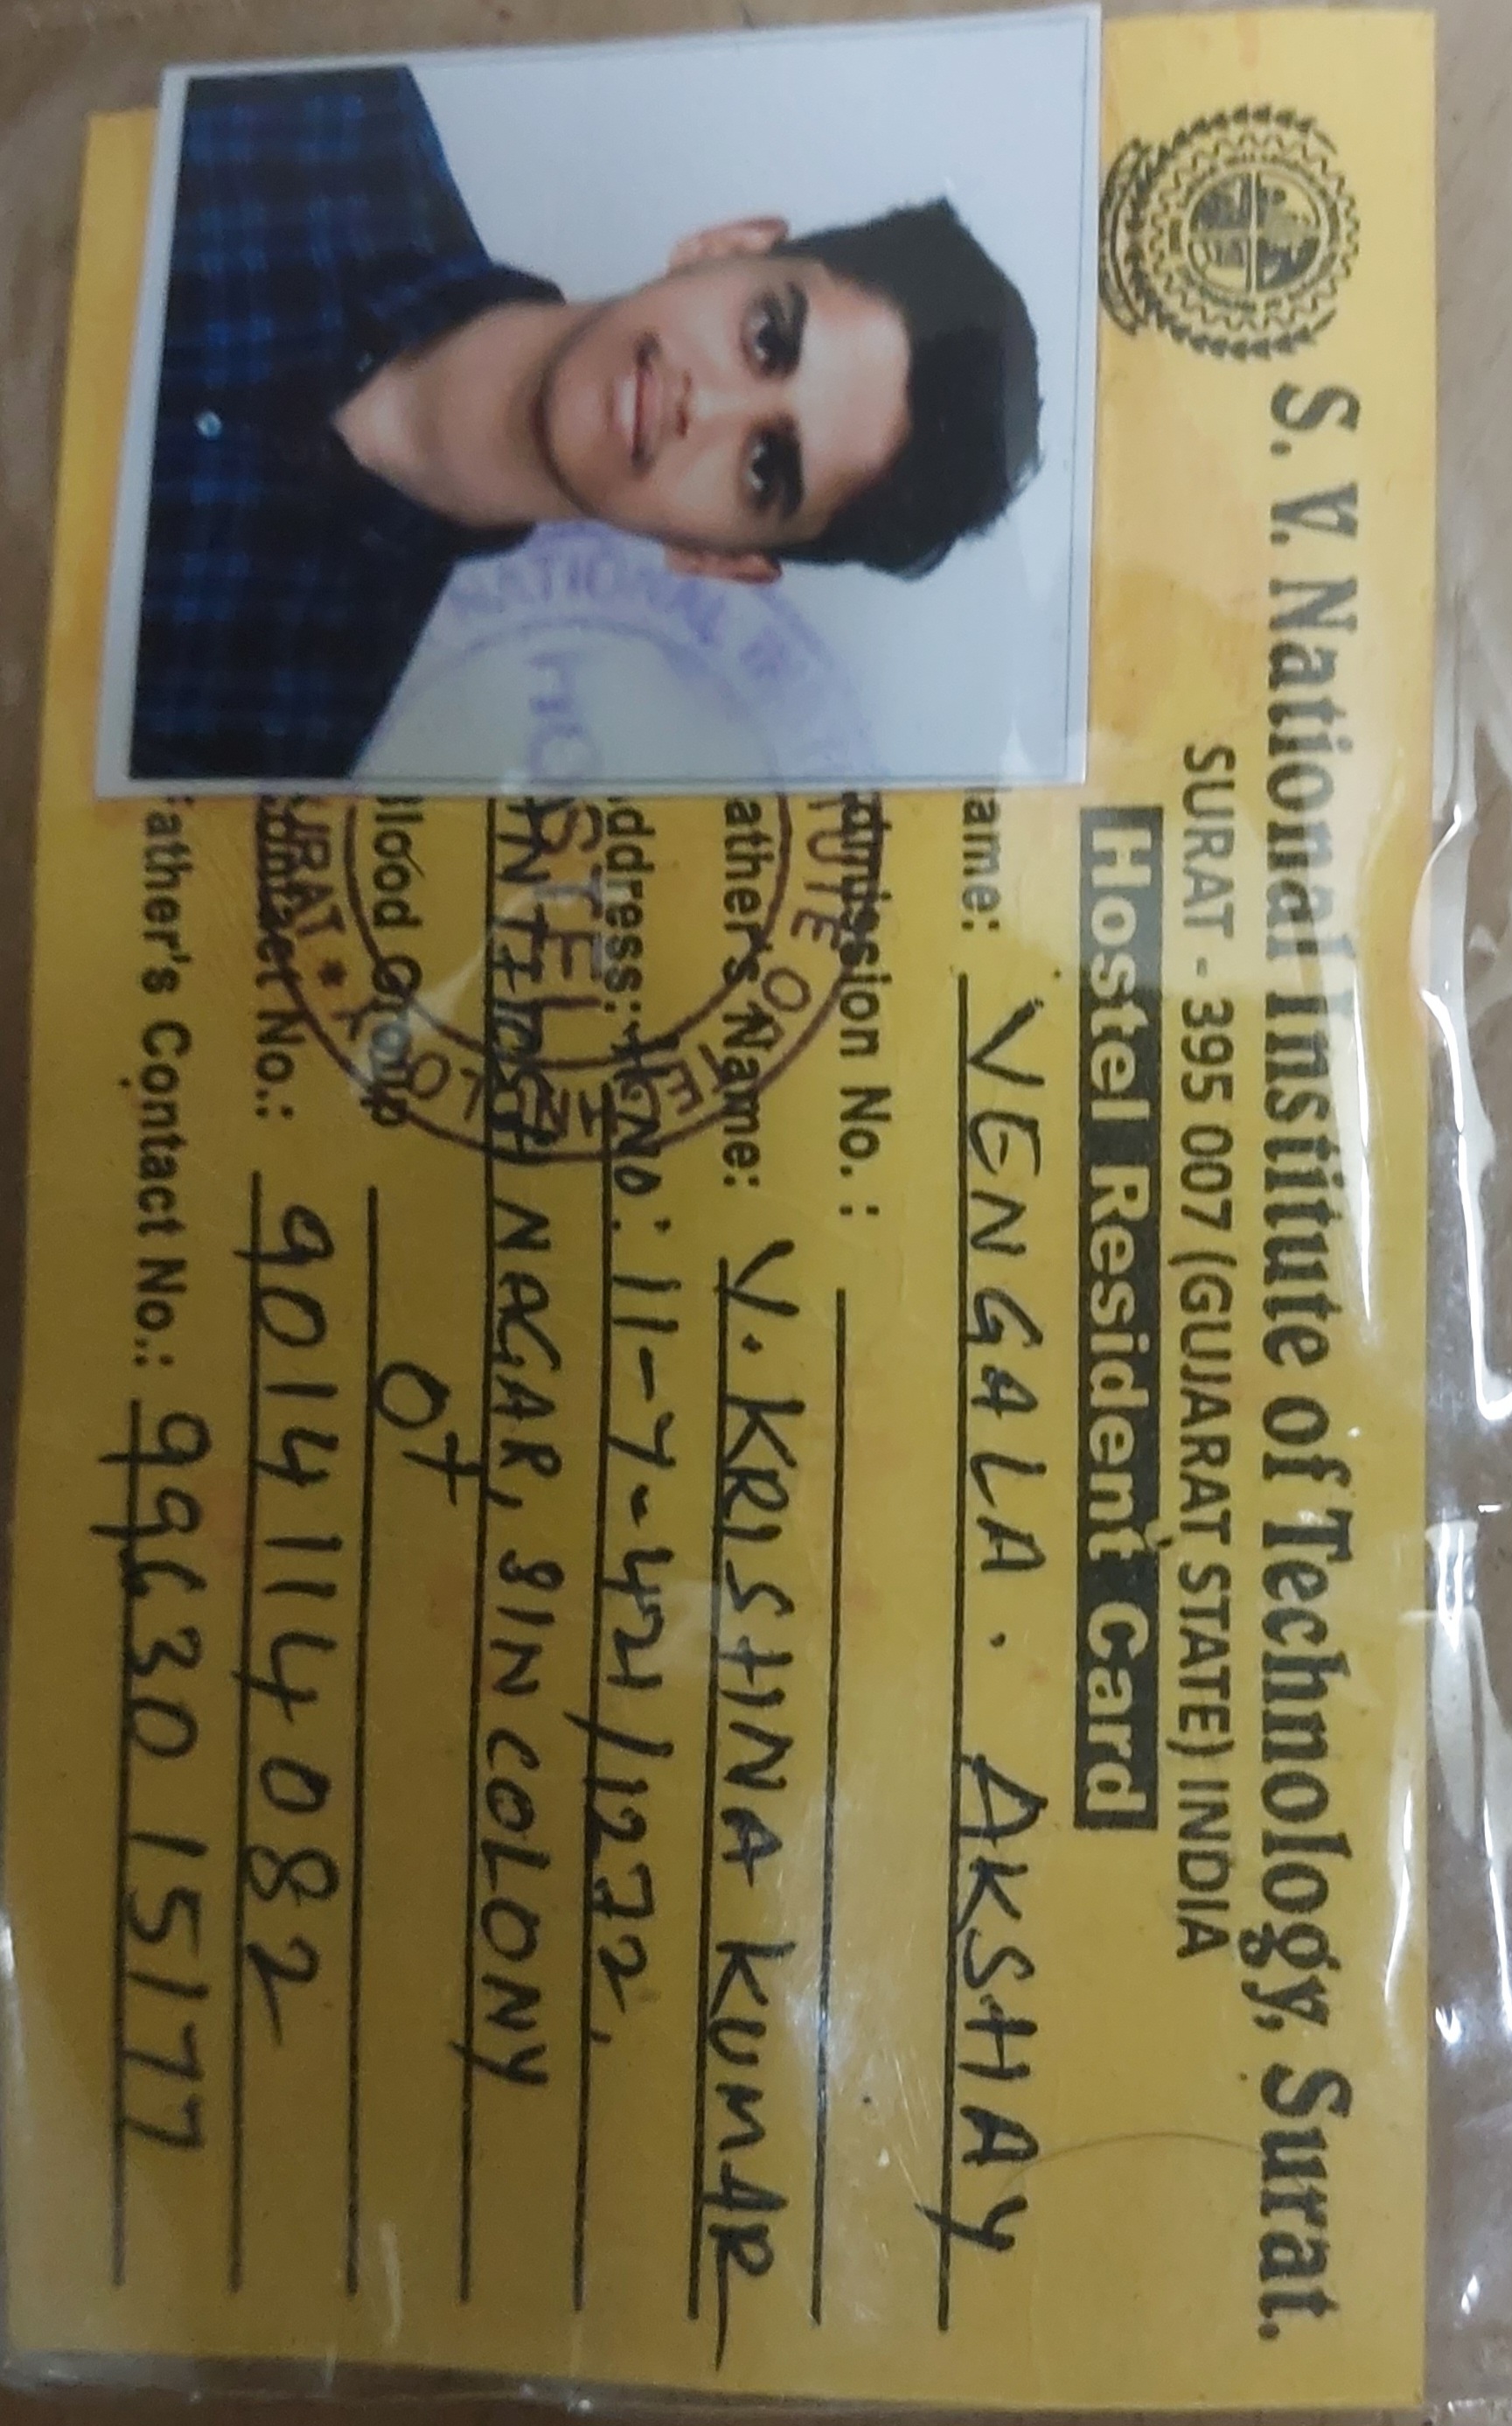 S. V. National Institute of Technology, Surat.
SURAT - 395 007 (GUJARAT STATE) INDIA
Hostel Resident Card
ame: VENGALA. AKSHAY
dmission No. :
ather's Name: V. KRISHNA KUMAR
ddress: H.NO: 11-7-421/1272,
NAGAR, SIN COLONY
lood Group O+
No.: 9014114082
ather's Contact No.: 9963015177
NATIONAL INSTITUTE OF
HOSTEL
SURAT *